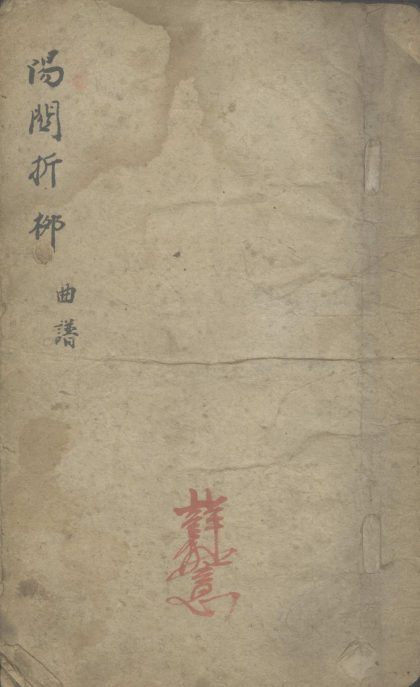 陽関折柳
曲譜